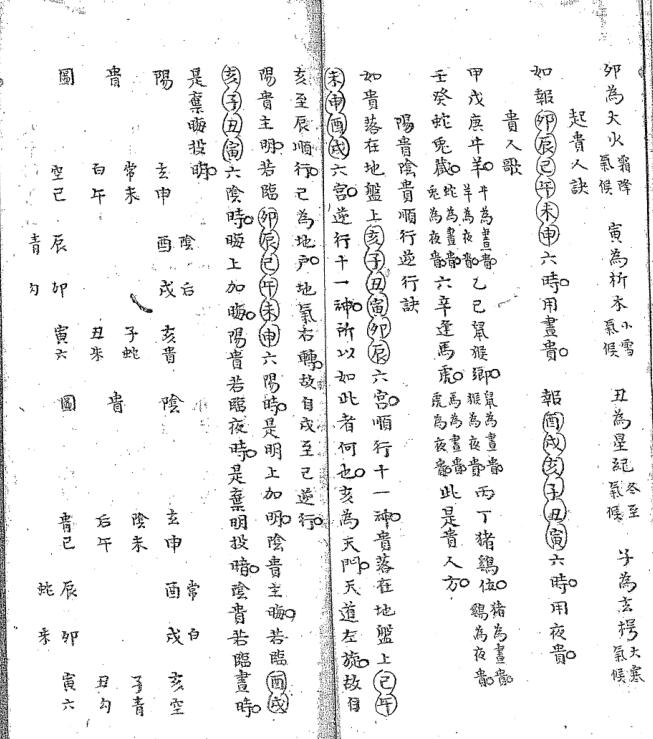 卯為大火 霜降氣候 寅為析木 小雪氣候 丑為星紀 冬至氣候 子為玄枵 大寒氣候
起貴人訣
如報卯辰巳午未申六時用晝貴○ 報酉戌亥子丑寅六時用夜貴○
貴人歌
甲戊庚牛羊○牛為晝貴○羊為夜貴○乙己鼠猴鄉○鼠為晝貴○猴為夜貴○丙丁猪鷄位○猪為晝貴○鷄為夜貴○
壬癸蛇兔藏○蛇為晝貴○兔為夜貴○六辛逢馬虎○馬為晝貴○虎為夜貴○此是貴人方○
陽貴陰貴順行逆行訣
如貴落在地盤上亥子丑寅卯辰六宮○順行十一神○貴落在地盤上巳午
未申酉戌六宮○逆行十一神○所以如此者何也○亥為天門○天道左旋○故自
亥至辰順行○巳為地戶○地氣右轉○故自戌至巳逆行○
陽貴主明○若臨卯辰巳午未申六陽時○是明上加明○陰貴主晦○若臨酉戌
亥子丑寅六陰時○晦上加晦○陽貴若臨夜時○是棄明投暗○陰貴若臨晝時○
是棄晦投明○
陽貴圖
玄申 陰酉 后戌 亥貴
常未 子蛇
白午 丑朱
空巳 青辰 勾卯 寅六
陰貴圖
玄申 常酉 白戌 亥空
陰未 子青
后午 丑勾
貴巳 蛇辰 朱卯 寅六